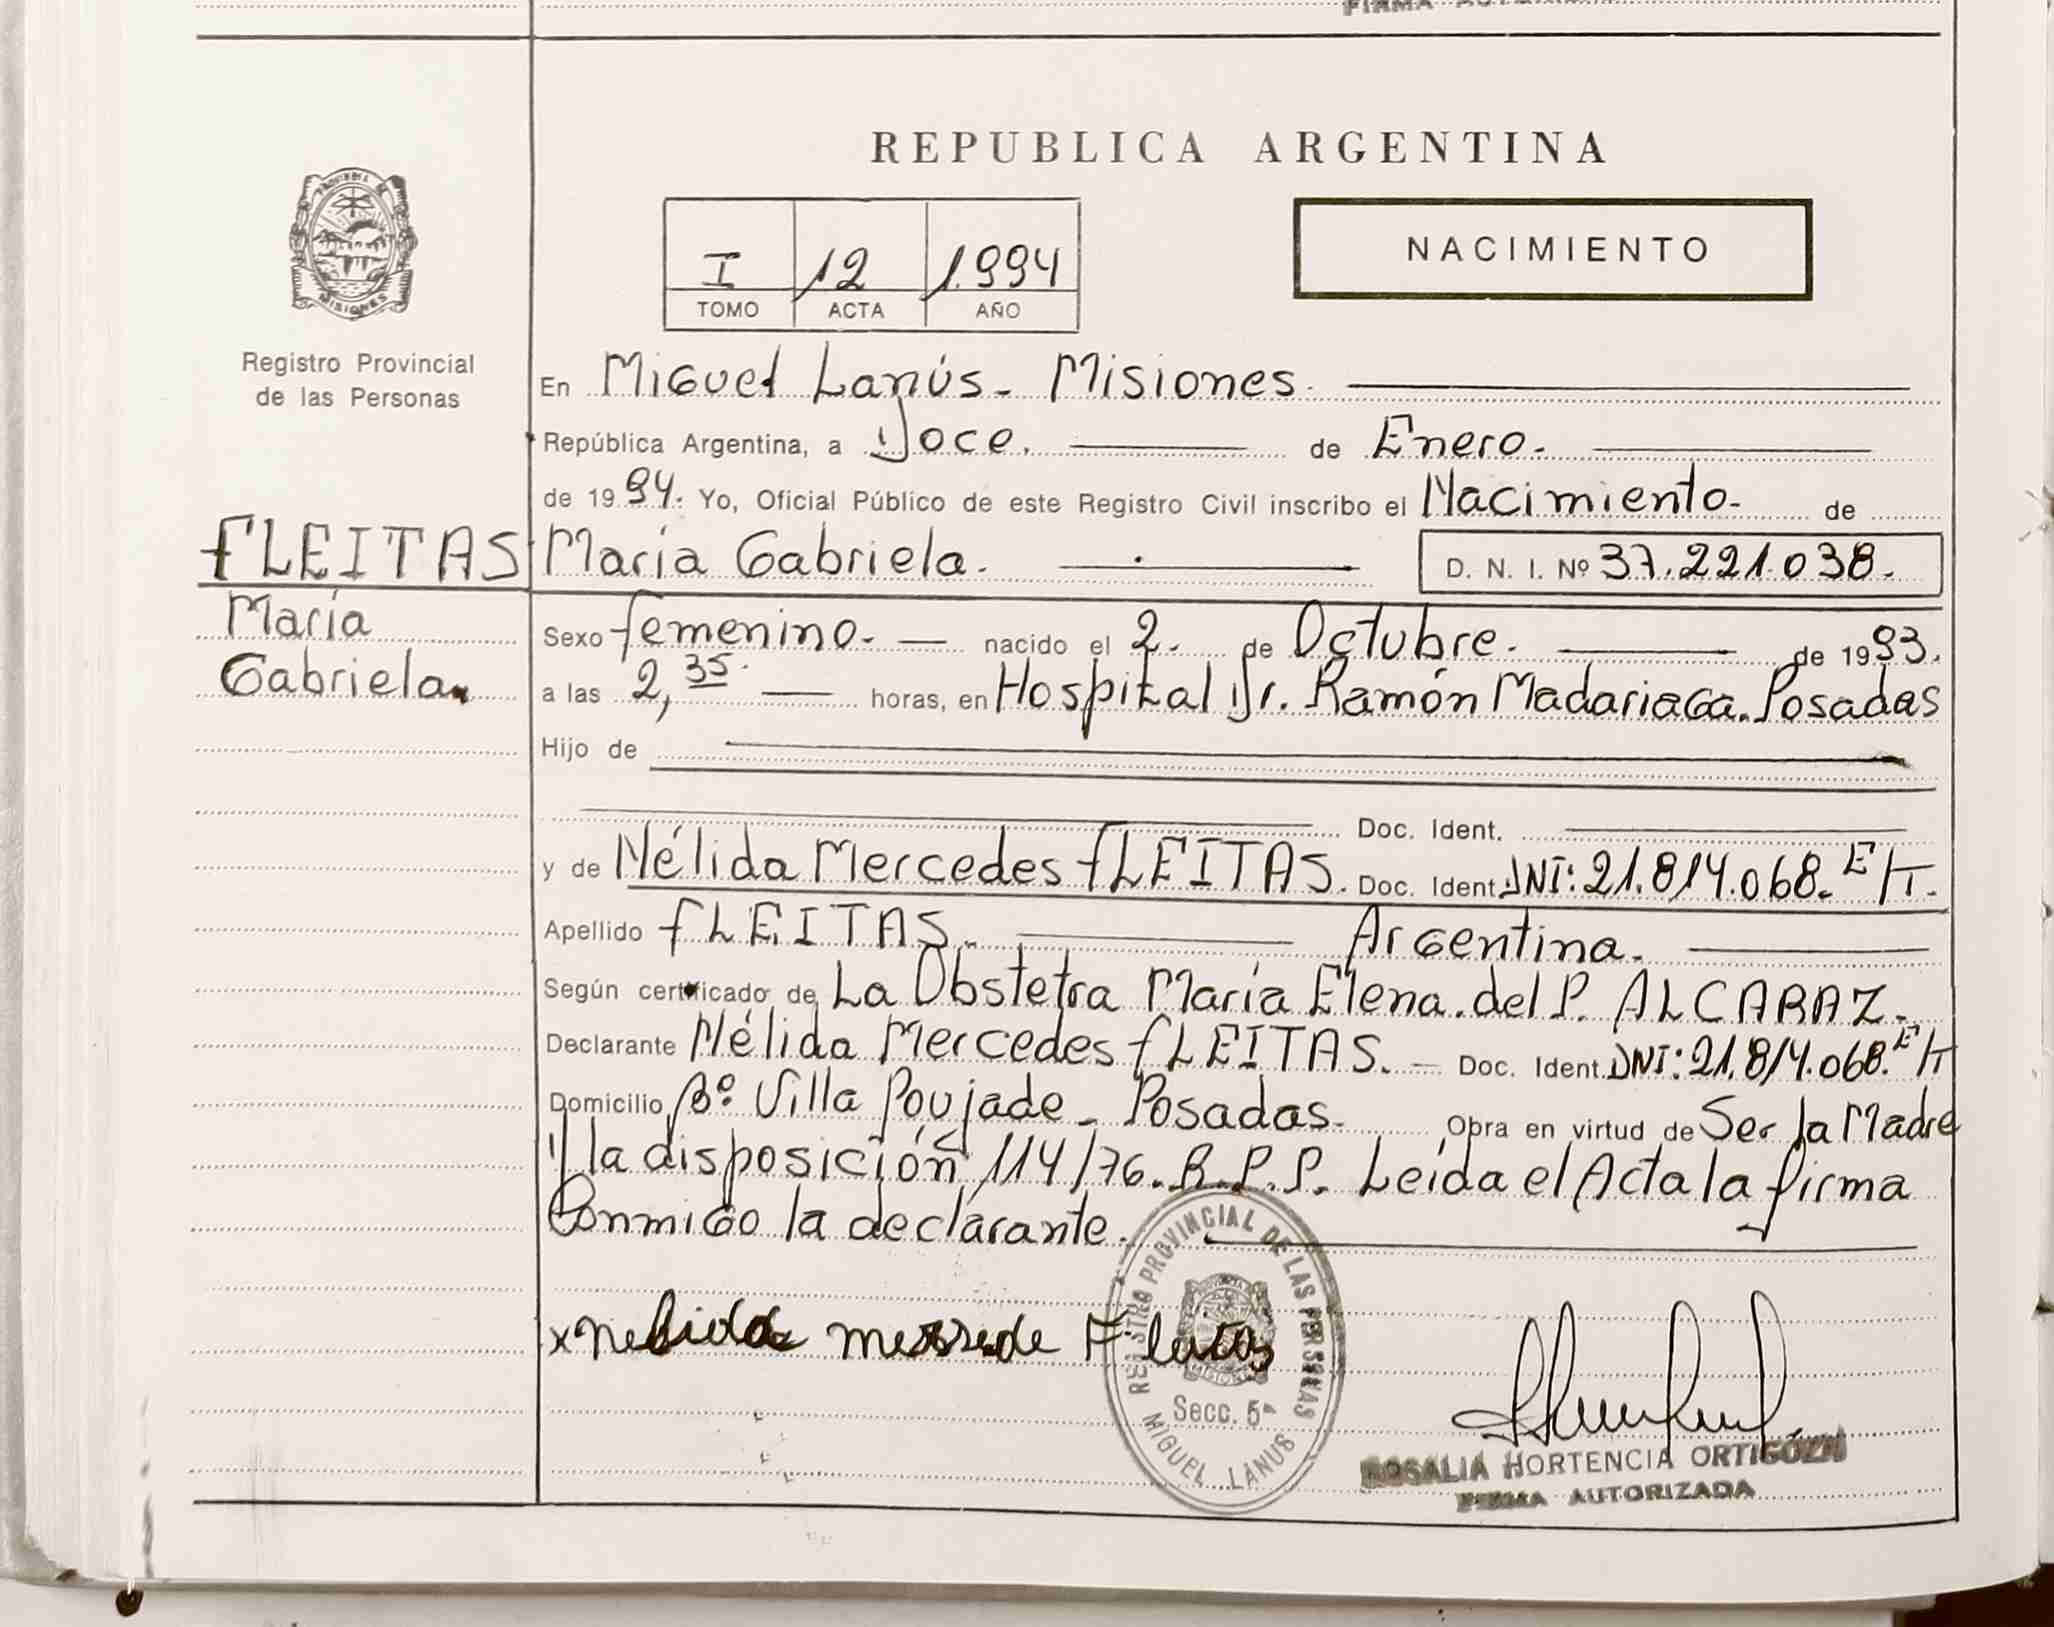 FIRMA AUTORIZADA
REPUBLICA ARGENTINA
PROVINCIA DE
MISIONES
I 12 1.994
TOMO ACTA AÑO
NACIMIENTO
Registro Provincial
de las Personas
En Miguel Lanús - Misiones.
República Argentina, a Doce. de Enero.
de 1994. Yo, Oficial Público de este Registro Civil inscribo el Nacimiento. de
FLEITAS María Gabriela. D. N. I. Nº 37.221.038.
María
Gabriela.
Sexo femenino. nacido el 2. de Octubre. de 1993.
a las 2,35. horas, en Hospital Dr. Ramón Madariaga. Posadas
Hijo de
Doc. Ident.
y de Nélida Mercedes FLEITAS. Doc. Ident. DNI: 21.814.068. E/T.
Apellido FLEITAS. Argentina.
Según certificado de La Obstetra María Elena. del P. ALCARAZ.
Declarante Nélida Mercedes FLEITAS. Doc. Ident. DNI: 21.814.068. E/T
Domicilio Bº Villa Poujade - Posadas. Obra en virtud de Ser la Madre
y la disposición 114/76. R.P.P. Leída el Acta la firma
Conmigo la declarante.
x nelida mersede F
REGISTRO PROVINCIAL DE LAS PERSONAS
MISIONES
Secc. 5ª
MIGUEL LANUS
ROSALIA HORTENCIA ORTIGOZA
FIRMA AUTORIZADA